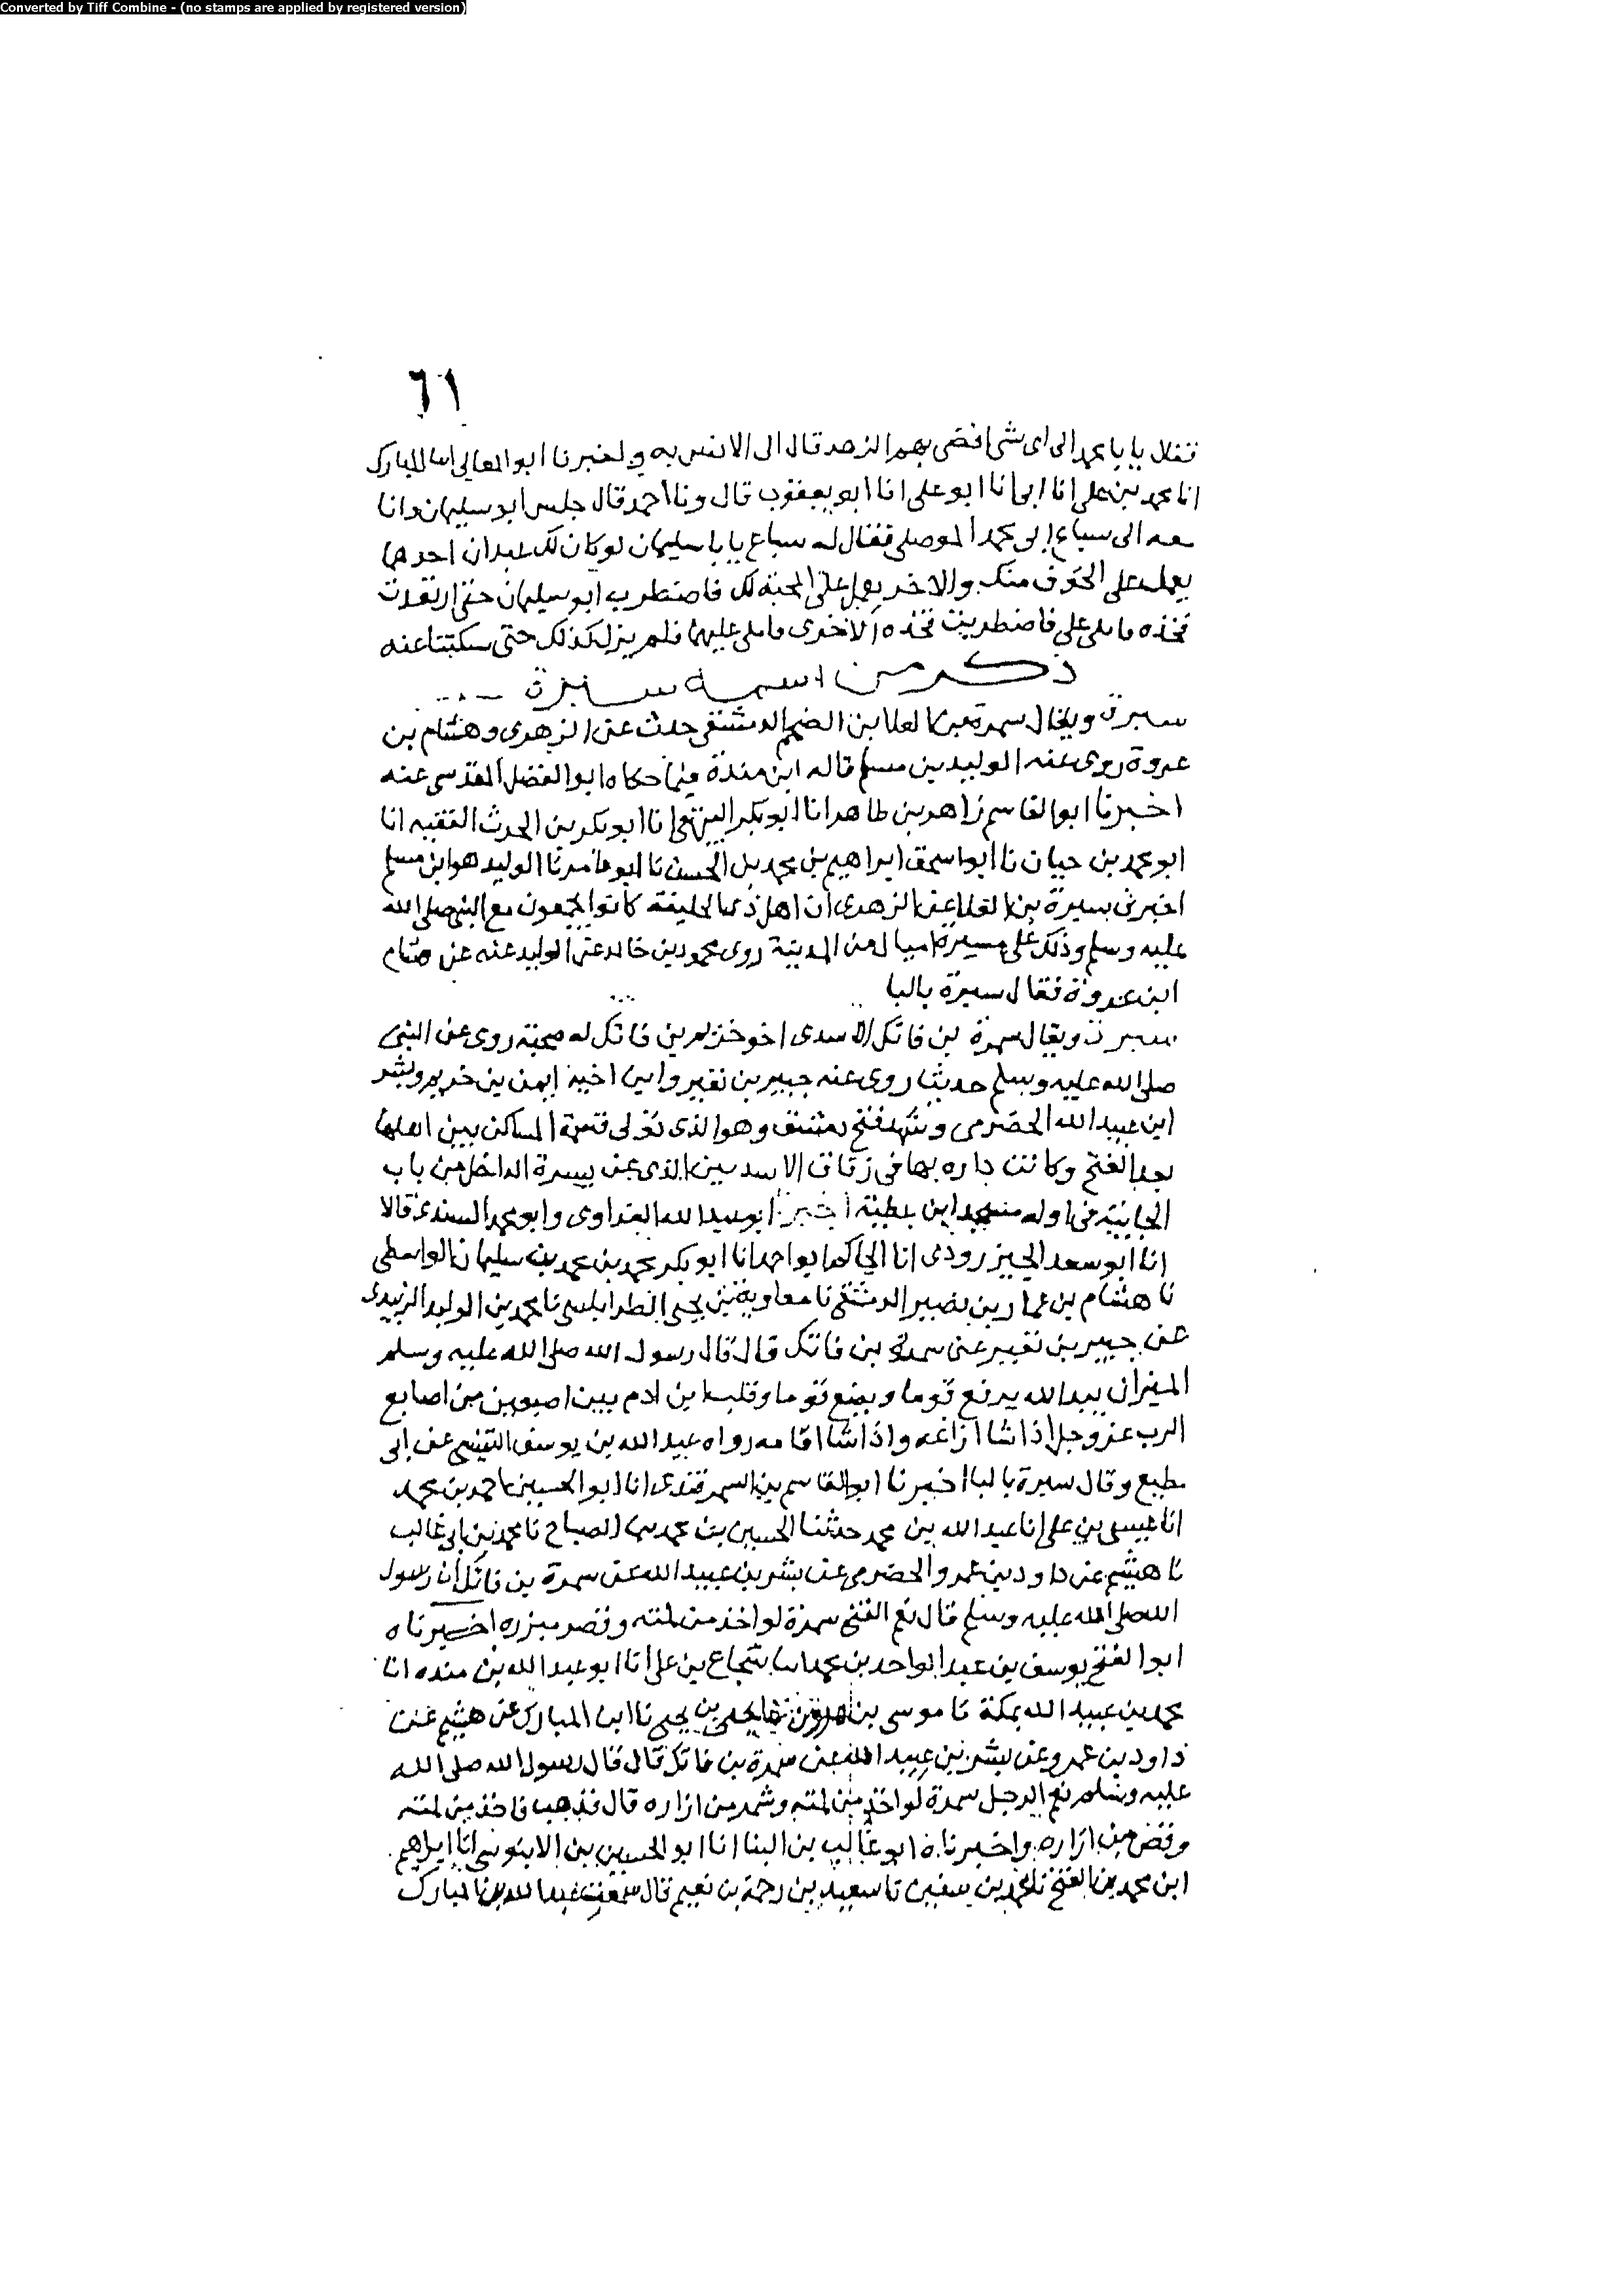 Converted by Tiff Combine - (no stamps are applied by registered version)
٦١
فقال يا با محمد الى اى شى افضى بهم الزهد قال الى الانس به واخبرنا ابو المعالى المبارك
انا محمد بن على انا ابى انا ابو على انا ابو يعقوب قال ونا احمد قال جلس ابو سليمان وانا
معه الى سباع ابى محمد الموصلى فقال له سباع يا با سليمان لو كان لك عبدان احدهما
يعمل على الخوف منك والاخر يعمل على المحبة لك فاضطرب ابو سليمان حتى ارتعدت
فخذه مما يلى على فاضطربت فخذه الاخرى مما يلى عليها فلم يزل كذلك حتى سكتنا عنه
ذكر من اسمه سبرة
سبرة ويقال سمرة بن العلا ابن الضخم الدمشقى حدث عن الزهرى وهشام بن
عروة روى عنه الوليد بن مسلم قاله ابن مندة فيما حكاه ابو الفضل المقدسى عنه
اخبرنا ابو القاسم زاهر بن طاهر انا ابو بكر البيهقى انا ابو بكر بن الحرث الفقيه انا
ابو محمد بن حيان نا ابو اسحق ابراهيم بن محمد بن الحسن نا ابو عامر نا الوليد هو ابن مسلم
اخبرنى سبرة بن العلا عن الزهرى ان اهل ذى الحليفة كانوا يجمعون مع النبى صلى الله
عليه وسلم وذلك على مسيرة اميال من المدينة روى محمود بن خالد عن الوليد عنه عن هشام
ابن عروة فقال سبرة بالبا
سبرة ويقال سمرة بن فاتك الاسدى اخو خزيم بن فاتك له صحبة روى عن النبى
صلى الله عليه وسلم حديثا روى عنه جبير بن نفير وابن اخيه ايمن بن خريم وبشر
ابن عبيد الله الحضرمى وشهد فتح دمشق وهو الذى تولى قسمة المساكن بين اهلها
بعد الفتح وكانت داره بها فى زقاق الاسديين الذى عن يسرة الداخل من باب
الجابية فى اوله مسجد ابن عطية اخبرنا ابو عبد الله الفراوى وابو محمد السندى قالا
انا ابو سعد الجنزرودى انا الحاكم ابو احمد انا ابو بكر محمد بن محمد بن سليمان الواسطى
نا هشام بن عمار بن نصير الدمشقى نا معاوية بن يحيى الطرابلسى نا محمد بن الوليد الزبيدى
عن جبير بن نفير عن سمرة بن فاتك قال قال رسول الله صلى الله عليه وسلم
الميزان بيد الله يرفع قوما ويضع قوما وقلب ابن ادم بين اصبعين من اصابع
الرب عز وجل اذا شا ازاغه واذا شا اقامه رواه عبد الله بن يوسف التنيسى عن ابى
مطيع وقال سبرة بالبا اخبرنا ابو القاسم بن السمرقندى انا ابو الحسين احمد بن محمد
انا عيسى بن على انا عبد الله بن محمد حدثنا الحسين بن محمد بن الصباح نا محمد بن ابى غالب
نا هشيم عن داود بن عمرو الحضرمى عن بشر بن عبيد الله عن سمرة بن فاتك ان رسول
الله صلى الله عليه وسلم قال نعم الفتى سمرة لو اخذ من لمته وقصر ميزره اخبرناه
ابو الفتح يوسف بن عبد الواحد بن محمد انا شجاع بن على انا ابو عبد الله بن منده انا
محمد بن عبيد الله بمكة نا موسى بن هرون نا يحيى بن يحيى نا ابن المبارك عن هشيم عن
داود بن عمرو عن بشر بن عبيد الله عن سمرة بن فاتك قال قال رسول الله صلى الله
عليه وسلم نعم الرجل سمرة لو اخذ من لمته وشمر من ازاره قال فذهب فاخذ من لمته
وقص من ازاره واخبرناه ابو غالب بن البنا انا ابو الحسين بن الابنوسى انا ابراهيم
ابن محمد بن الفتح نا محمد بن سفين نا سعيد بن رحمة بن نعيم قال سمعت عبد الله بن المبارك